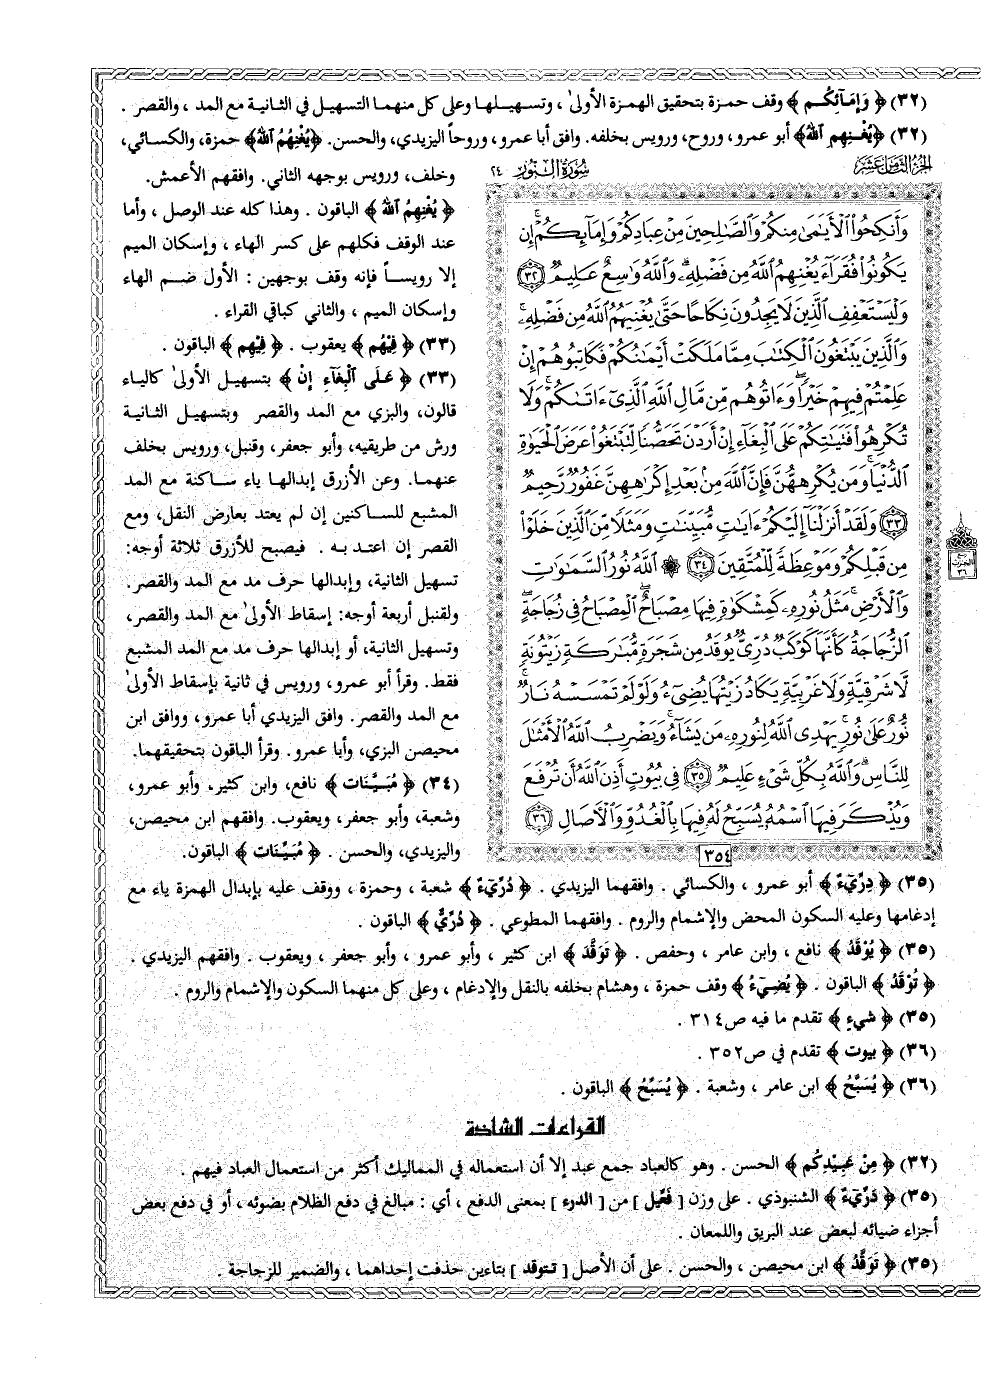 (٣٢) ﴿ وَإِمَآئِكُم ﴾ وقف حمزة بتحقيق الهمزة الأولىٰ ، وتسهيلها وعلى كل منهما التسهيل في الثانية مع المد ، والقصر .
(٣٢) ﴿يُغْنِهِمِ ٱللَّهُ﴾ أبو عمرو، وروح، ورويس بخلفه. وافق أبا عمرو، وروحاً اليزيدي، والحسن. ﴿يُغْنِهُمُ ٱللَّهُ﴾ حمزة، والكسائي،
وخلف، ورويس بوجهه الثاني. وافقهم الأعمش.
﴿ يُغْنِهِمُ ٱللَّهُ ﴾ الباقون . وهذا كله عند الوصل ، وأما
عند الوقف فكلهم على كسر الهاء ، وإسكان الميم
إلا رويساً فإنه وقف بوجهين : الأول ضم الهاء
وإسكان الميم ، والثاني كباقي القراء .
(٣٣) ﴿ فِيهُم ﴾ يعقوب . ﴿ فِيهِم ﴾ الباقون .
(٣٣) ﴿ عَلَى ٱلْبِغَآءِ إِنْ ﴾ بتسهيل الأولىٰ كالياء
قالون، والبزي مع المد والقصر وبتسهيل الثانية
ورش من طريقيه، وأبو جعفر، وقنبل، ورويس بخلف
عنهما. وعن الأزرق إبدالها ياء ساكنة مع المد
المشبع للساكنين إن لم يعتد بعارض النقل، ومع
القصر إن اعتد به . فيصبح للأزرق ثلاثة أوجه:
تسهيل الثانية، وإبدالها حرف مد مع المد والقصر.
ولقنبل أربعة أوجه: إسقاط الأولىٰ مع المد والقصر،
وتسهيل الثانية، أو إبدالها حرف مد مع المد المشبع
فقط. وقرأ أبو عمرو، ورويس في ثانية بإسقاط الأولىٰ
مع المد والقصر. وافق اليزيدي أبا عمرو، ووافق ابن
محيصن البزي، وأبا عمرو. وقرأ الباقون بتحقيقهما.
(٣٤) ﴿ مُبَيَّنَات ﴾ نافع، وابن كثير، وأبو عمرو،
وشعبة، وأبو جعفر، ويعقوب. وافقهم ابن محيصن،
واليزيدي، والحسن . ﴿ مُبَيِّنَات ﴾ الباقون.
الجزء الثامن عشر
سورة النور ٢٤
وَأَنكِحُوا۟ ٱلْأَيَـٰمَىٰ مِنكُمْ وَٱلصَّـٰلِحِينَ مِنْ عِبَادِكُمْ وَإِمَآئِكُمْ ۚ إِن
يَكُونُوا۟ فُقَرَآءَ يُغْنِهِمُ ٱللَّهُ مِن فَضْلِهِۦ ۗ وَٱللَّهُ وَٰسِعٌ عَلِيمٌ ٣٢
وَلْيَسْتَعْفِفِ ٱلَّذِينَ لَا يَجِدُونَ نِكَاحًا حَتَّىٰ يُغْنِيَهُمُ ٱللَّهُ مِن فَضْلِهِۦ ۗ
وَٱلَّذِينَ يَبْتَغُونَ ٱلْكِتَـٰبَ مِمَّا مَلَكَتْ أَيْمَـٰنُكُمْ فَكَاتِبُوهُمْ إِنْ
عَلِمْتُمْ فِيهِمْ خَيْرًا ۖ وَءَاتُوهُم مِّن مَّالِ ٱللَّهِ ٱلَّذِىٓ ءَاتَىٰكُمْ ۚ وَلَا
تُكْرِهُوا۟ فَتَيَـٰتِكُمْ عَلَى ٱلْبِغَآءِ إِنْ أَرَدْنَ تَحَصُّنًا لِّتَبْتَغُوا۟ عَرَضَ ٱلْحَيَوٰةِ
ٱلدُّنْيَا ۚ وَمَن يُكْرِههُّنَّ فَإِنَّ ٱللَّهَ مِنۢ بَعْدِ إِكْرَٰهِهِنَّ غَفُورٌ رَّحِيمٌ
٣٣ وَلَقَدْ أَنزَلْنَآ إِلَيْكُمْ ءَايَـٰتٍ مُّبَيِّنَـٰتٍ وَمَثَلًا مِّنَ ٱلَّذِينَ خَلَوْا۟
مِن قَبْلِكُمْ وَمَوْعِظَةً لِّلْمُتَّقِينَ ٣٤ ۞ ٱللَّهُ نُورُ ٱلسَّمَـٰوَٰتِ
وَٱلْأَرْضِ ۚ مَثَلُ نُورِهِۦ كَمِشْكَوٰةٍ فِيهَا مِصْبَاحٌ ۖ ٱلْمِصْبَاحُ فِى زُجَاجَةٍ ۖ
ٱلزُّجَاجَةُ كَأَنَّهَا كَوْكَبٌ دُرِّىٌّ يُوقَدُ مِن شَجَرَةٍ مُّبَـٰرَكَةٍ زَيْتُونَةٍ
لَّا شَرْقِيَّةٍ وَلَا غَرْبِيَّةٍ يَكَادُ زَيْتُهَا يُضِىٓءُ وَلَوْ لَمْ تَمْسَسْهُ نَارٌ ۚ
نُّورٌ عَلَىٰ نُورٍ ۗ يَهْدِى ٱللَّهُ لِنُورِهِۦ مَن يَشَآءُ ۚ وَيَضْرِبُ ٱللَّهُ ٱلْأَمْثَـٰلَ
لِلنَّاسِ ۗ وَٱللَّهُ بِكُلِّ شَىْءٍ عَلِيمٌ ٣٥ فِى بُيُوتٍ أَذِنَ ٱللَّهُ أَن تُرْفَعَ
وَيُذْكَرَ فِيهَا ٱسْمُهُۥ يُسَبِّحُ لَهُۥ فِيهَا بِٱلْغُدُوِّ وَٱلْءَاصَالِ ٣٦
٣٥٤
(٣٥) ﴿ دِرِّيٓءٌ ﴾ أبو عمرو ، والكسائي . وافقهما اليزيدي . ﴿ دُرِّيٓءٌ ﴾ شعبة ، وحمزة ، ووقف عليه بإبدال الهمزة ياء مع
إدغامها وعليه السكون المحض والإشمام والروم . وافقهما المطوعي . ﴿ دُرِّيٌّ ﴾ الباقون .
(٣٥) ﴿ يُوْقَدُ ﴾ نافع ، وابن عامر ، وحفص . ﴿ تَوَقَّدَ ﴾ ابن كثير ، وأبو عمرو ، وأبو جعفر ، ويعقوب . وافقهم اليزيدي .
﴿ تُوْقَدُ ﴾ الباقون . ﴿ يُضِيٓءُ ﴾ وقف حمزة ، وهشام بخلفه بالنقل والإدغام ، وعلى كل منهما السكون والإشمام والروم .
(٣٥) ﴿ شَيءٍ ﴾ تقدم ما فيه ص٣١٤ .
(٣٦) ﴿ بيوت ﴾ تقدم في ص٣٥٢ .
(٣٦) ﴿ يُسَبَّحُ ﴾ ابن عامر ، وشعبة . ﴿ يُسَبِّحُ ﴾ الباقون .
القراءات الشاذة
(٣٢) ﴿ مِنْ عَبِيْدِكُم ﴾ الحسن . وهو كالعباد جمع عبد إلا أن استعماله في المماليك أكثر من استعمال العباد فيهم .
(٣٥) ﴿ دَرِّيٓءٌ ﴾ الشنبوذي . على وزن [ فَعِّيل ] من [ الدرء ] بمعنى الدفع ، أي : مبالغ في دفع الظلام بضوئه ، أو في دفع بعض
أجزاء ضيائه لبعض عند البريق واللمعان .
(٣٥) ﴿ تَوَقَّدُ ﴾ ابن محيصن ، والحسن . على أن الأصل [ تتوقد ] بتاءين حذفت إحداهما ، والضمير للزجاجة .